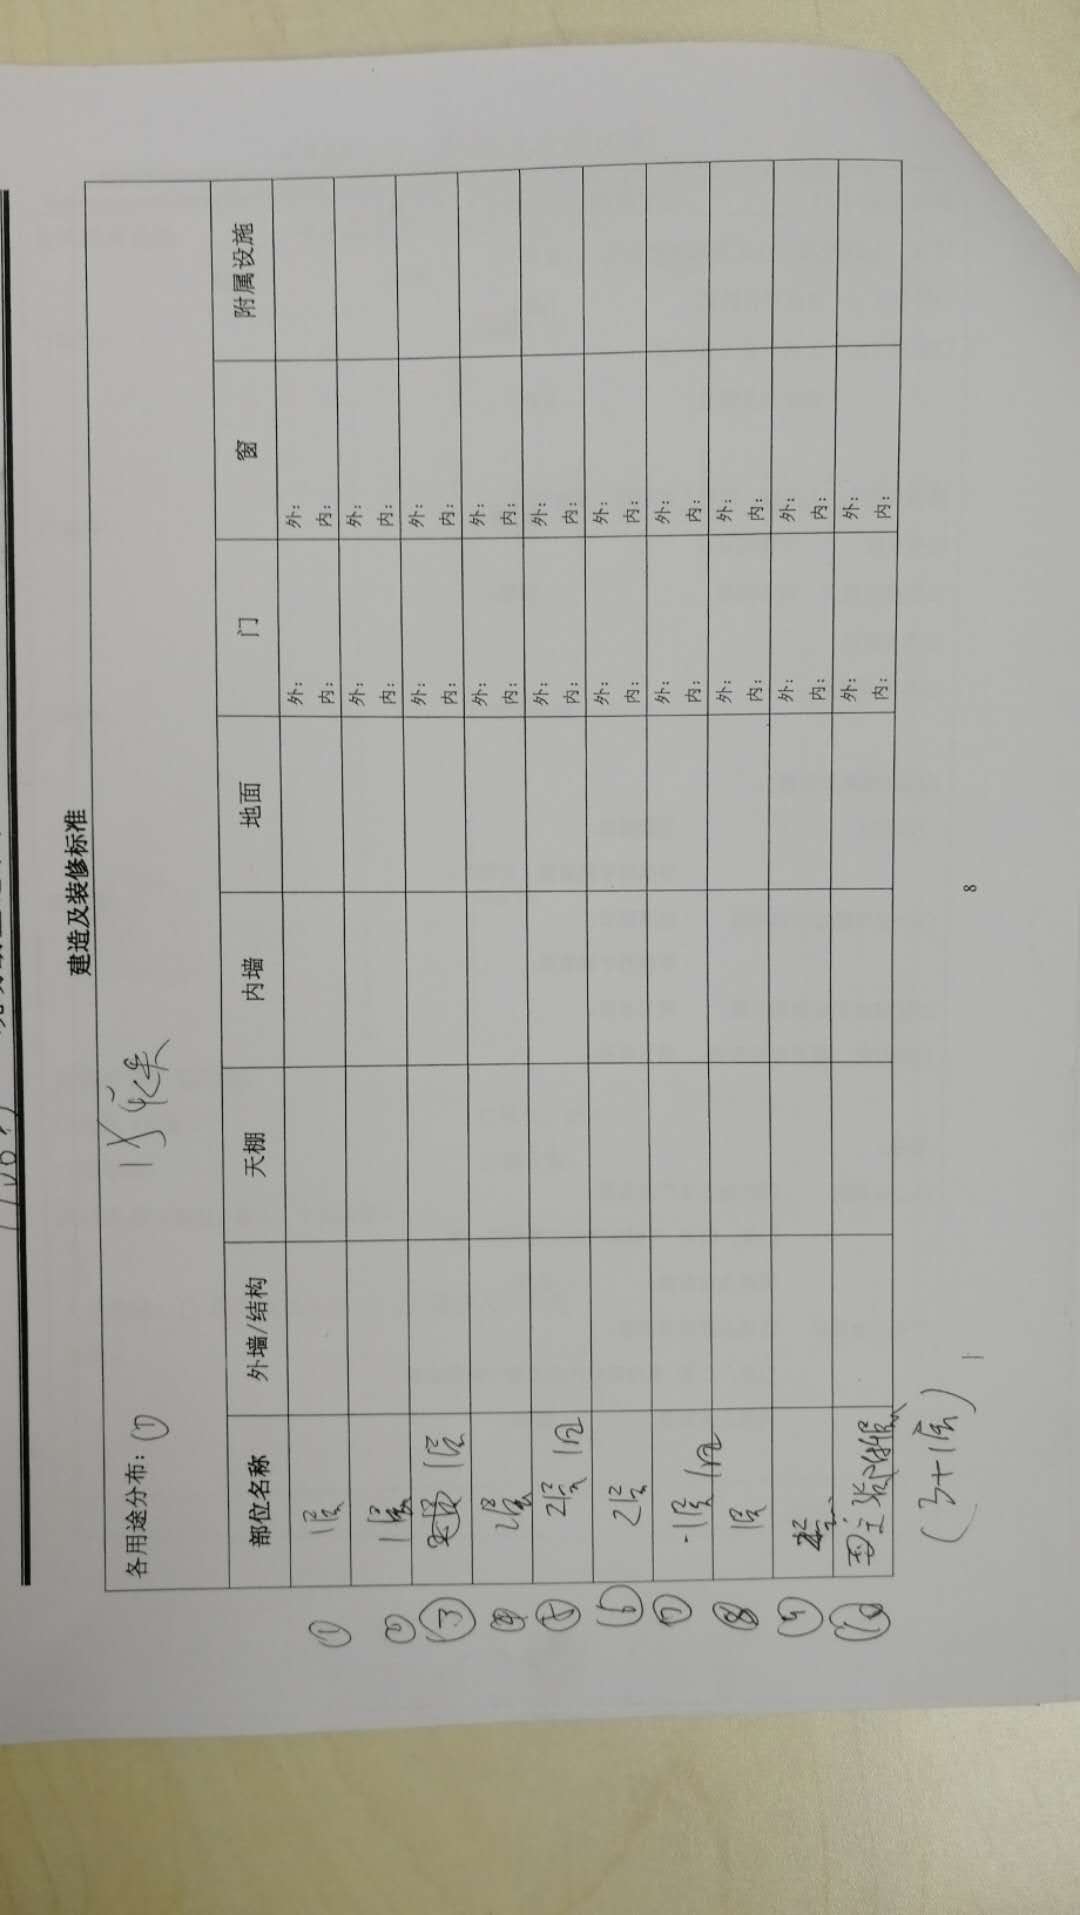 建造及装修标准
各用途分布: ①
部位名称 外墙/结构 天棚 内墙 地面 门 窗 附属设施
① 1层 外: 内: 外: 内:
② 1层 外: 内: 外: 内:
③ 1层 外: 内: 外: 内:
④ 2层 外: 内: 外: 内:
⑤ 2层 外: 内: 外: 内:
⑥ 2层 外: 内: 外: 内:
⑦ 1层 外: 内: 外: 内:
⑧ 1层 外: 内: 外: 内:
⑨ 外: 内: 外: 内:
⑩ 外: 内: 外: 内:
(3+1层)
8